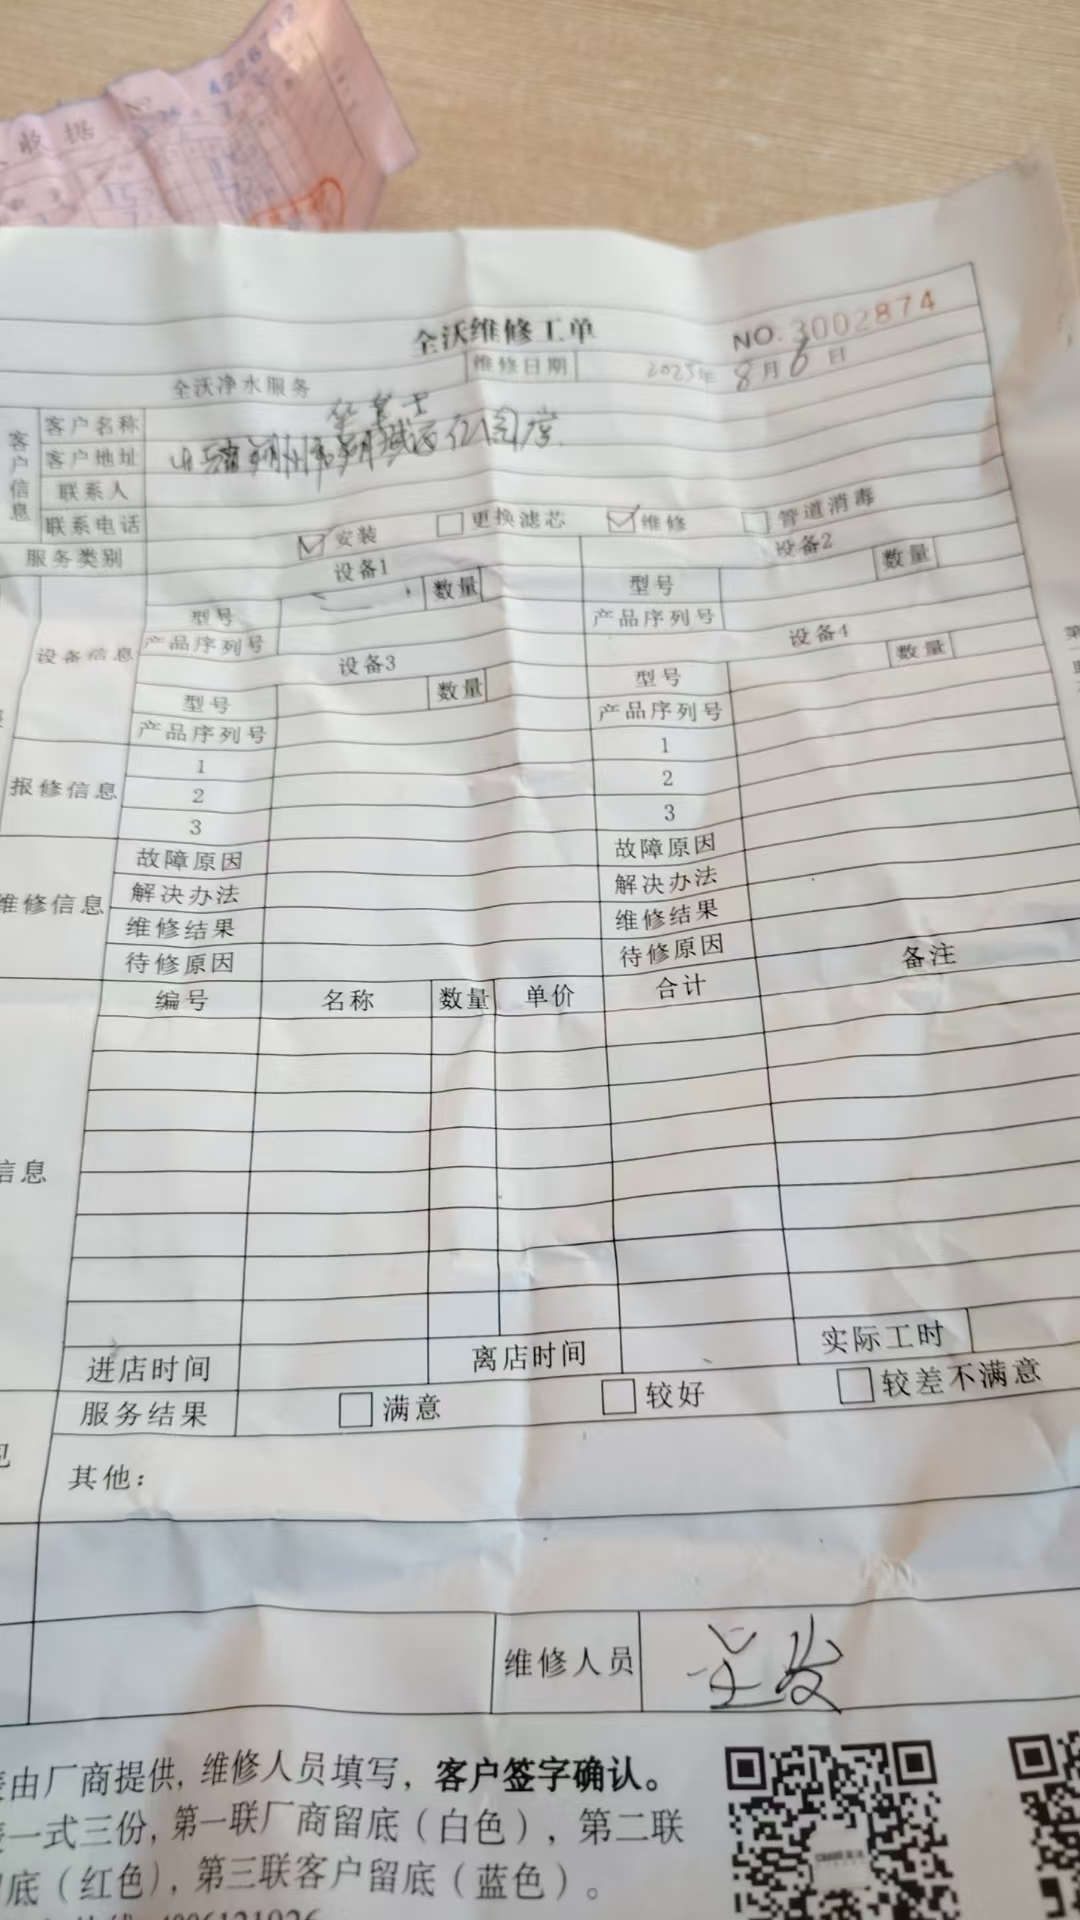 收据
全沃维修工单
NO. 3002874
全沃净水服务
维修日期 2025年 8月6日
客户信息
客户名称
客户地址 山西省朔州市朔城区亿阅府
联系人
联系电话
服务类别 安装 更换滤芯 维修 管道消毒
设备信息
设备1 设备2
型号 数量 型号 数量
产品序列号 产品序列号
设备3 设备4
型号 数量 型号 数量
产品序列号 产品序列号
报修信息
1 1
2 2
3 3
维修信息
故障原因 故障原因
解决办法 解决办法
维修结果 维修结果
待修原因 待修原因
编号 名称 数量 单价 合计 备注
信息
进店时间 离店时间 实际工时
服务结果 满意 较好 较差不满意
见
其他：
维修人员
由厂商提供, 维修人员填写, 客户签字确认。
一式三份, 第一联厂商留底（白色）, 第二联
底（红色）, 第三联客户留底（蓝色）。